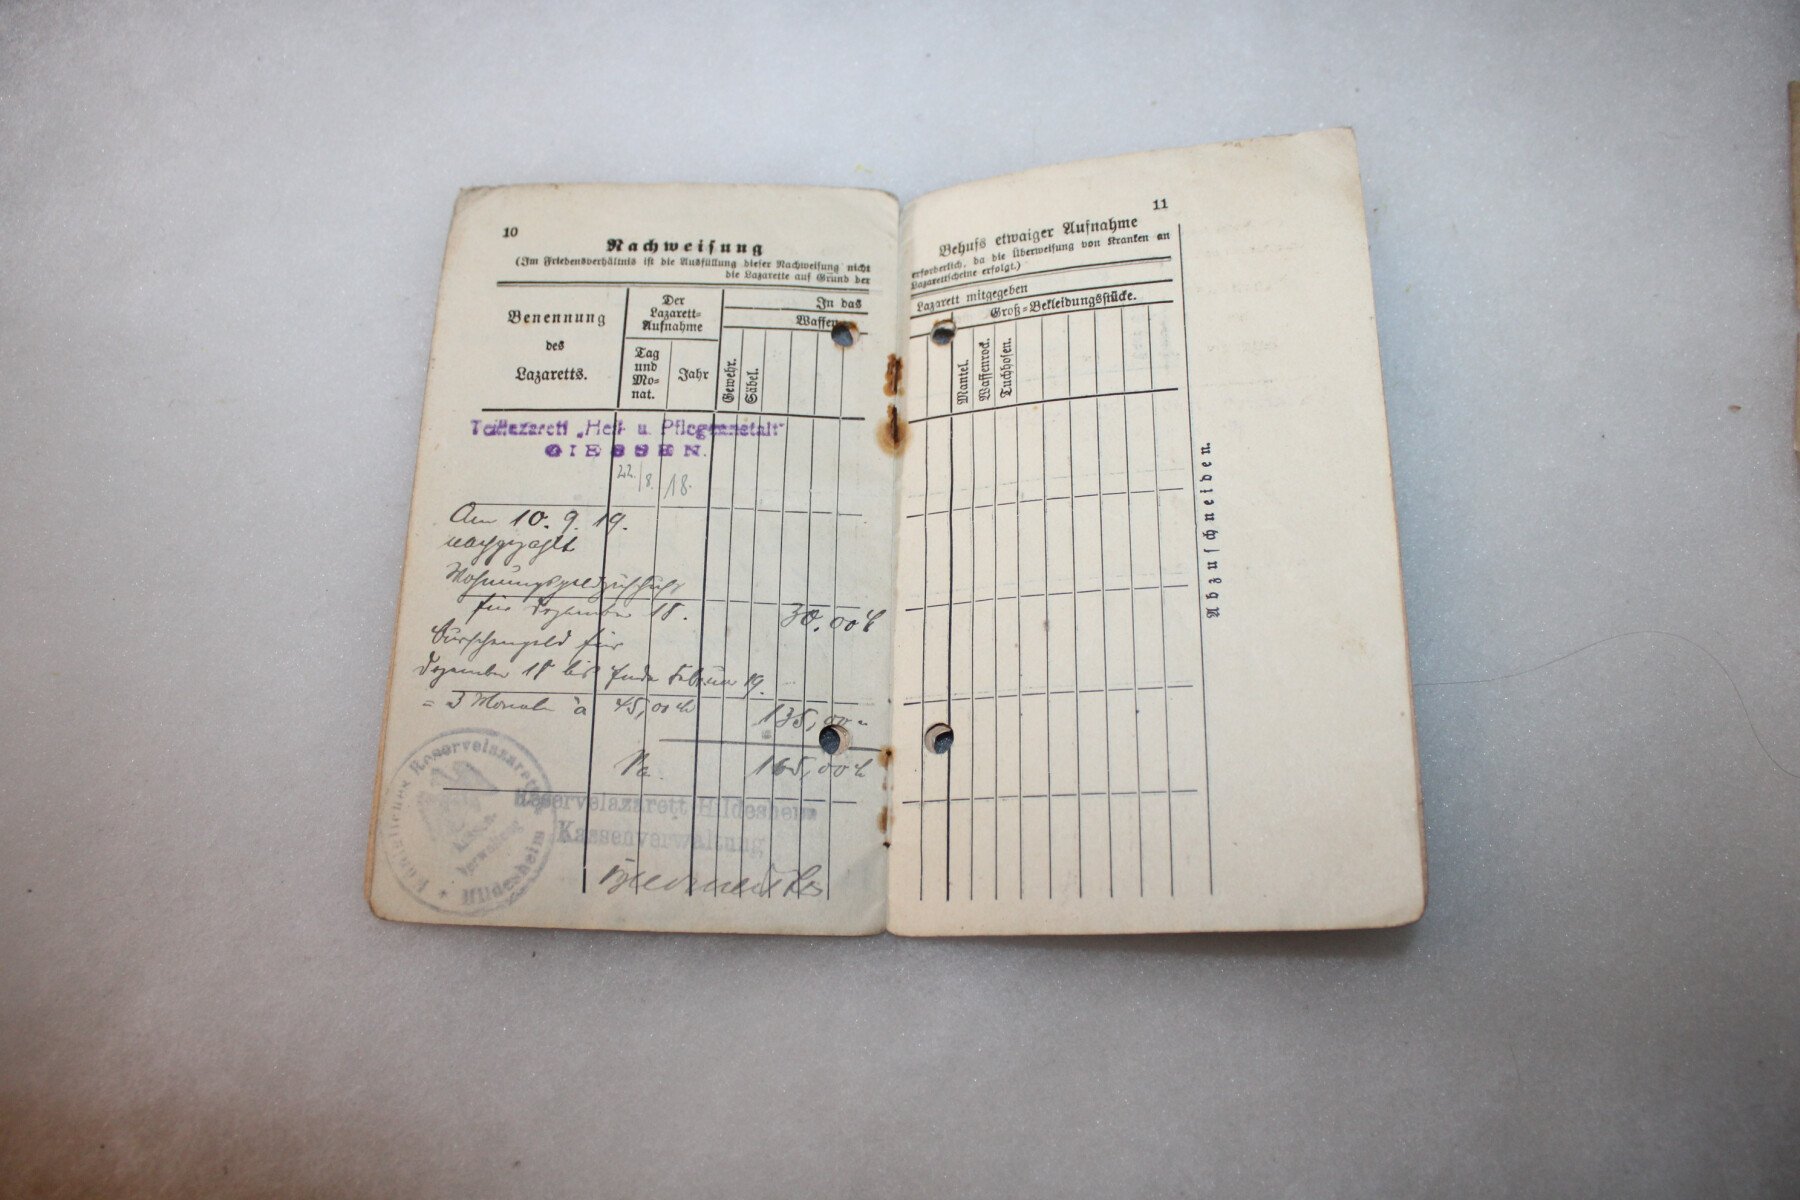 10
Nachweisung
(Im Friedensverhältnis ist die Ausfüllung dieser Nachweisung nicht
die Lazarette auf Grund der
Benennung
des
Lazaretts.
Der
Lazarett-
Aufnahme
Tag
und
Mo-
nat.
Jahr
In das
Waffen
Gewehr.
Säbel.
Teillazarett "Heil- u. Pflegeanstalt"
GIESSEN.
22./8. 18.
Am 10. 9. 19.
nachgezahlt
Wohnungsgeldzuschuß
für Dezember 18. 30.00 M
Burschengeld für
Dezember 18 bis Ende Februar 19.
= 3 Monate a 45,00 M 135,00 "
165,00 M
Königliches Reservelazarett
Kassen-
verwaltung
* Hildesheim
Reservelazarett Hildesheim
Kassenverwaltung
11
Behufs etwaiger Aufnahme
erforderlich, da die Überweisung von Kranken an
Lazarettscheine erfolgt.)
Lazarett mitgegeben
Groß-Bekleidungsstücke.
Mantel.
Waffenrock.
Tuchhosen.
Abzuschneiden.